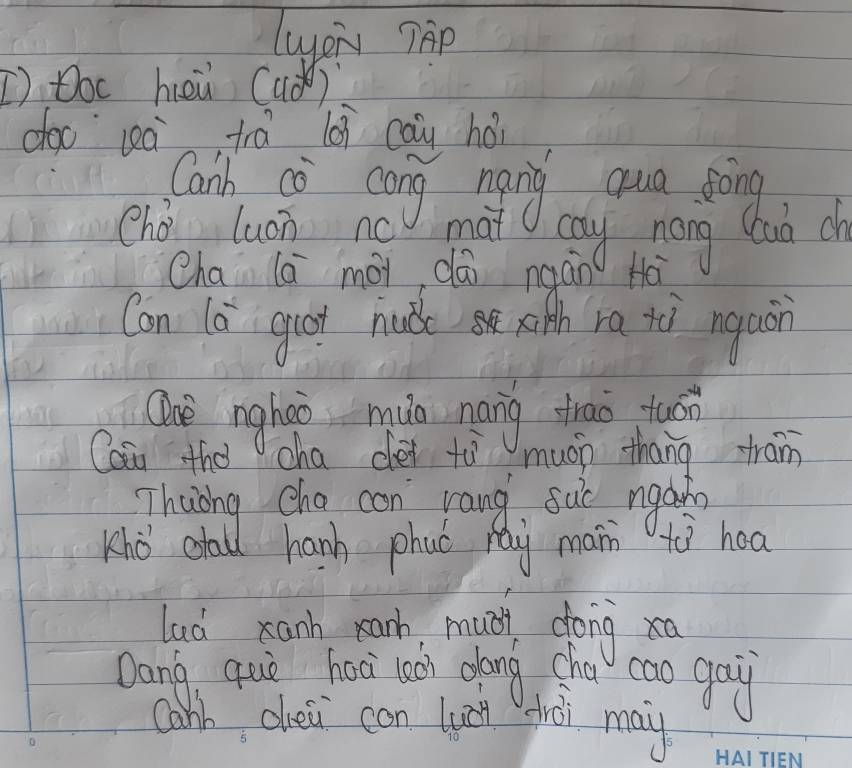 Luyện TẬP
I) Đọc hiểu (4đ)
đọc và trả lời câu hỏi
Cánh cò cõng nắng qua sông
Chở luôn nc mắt cay nồng của ch
Cha là một dải ngân Hà
Con là giọt nước sinh ra từ nguồn
Quê nghèo mưa nắng trào tuôn
Câu thơ cha dệt từ muôn thăng trầm
Thương cha con ráng sức ngâm
Khổ đau hạnh phúc nảy mầm từ hoa
lúa xanh xanh mướt đồng xa
Dáng quê hoà với dáng cha cao gầy
Cánh diều con lướt trời mây
0 5 10 15
HAI TIEN